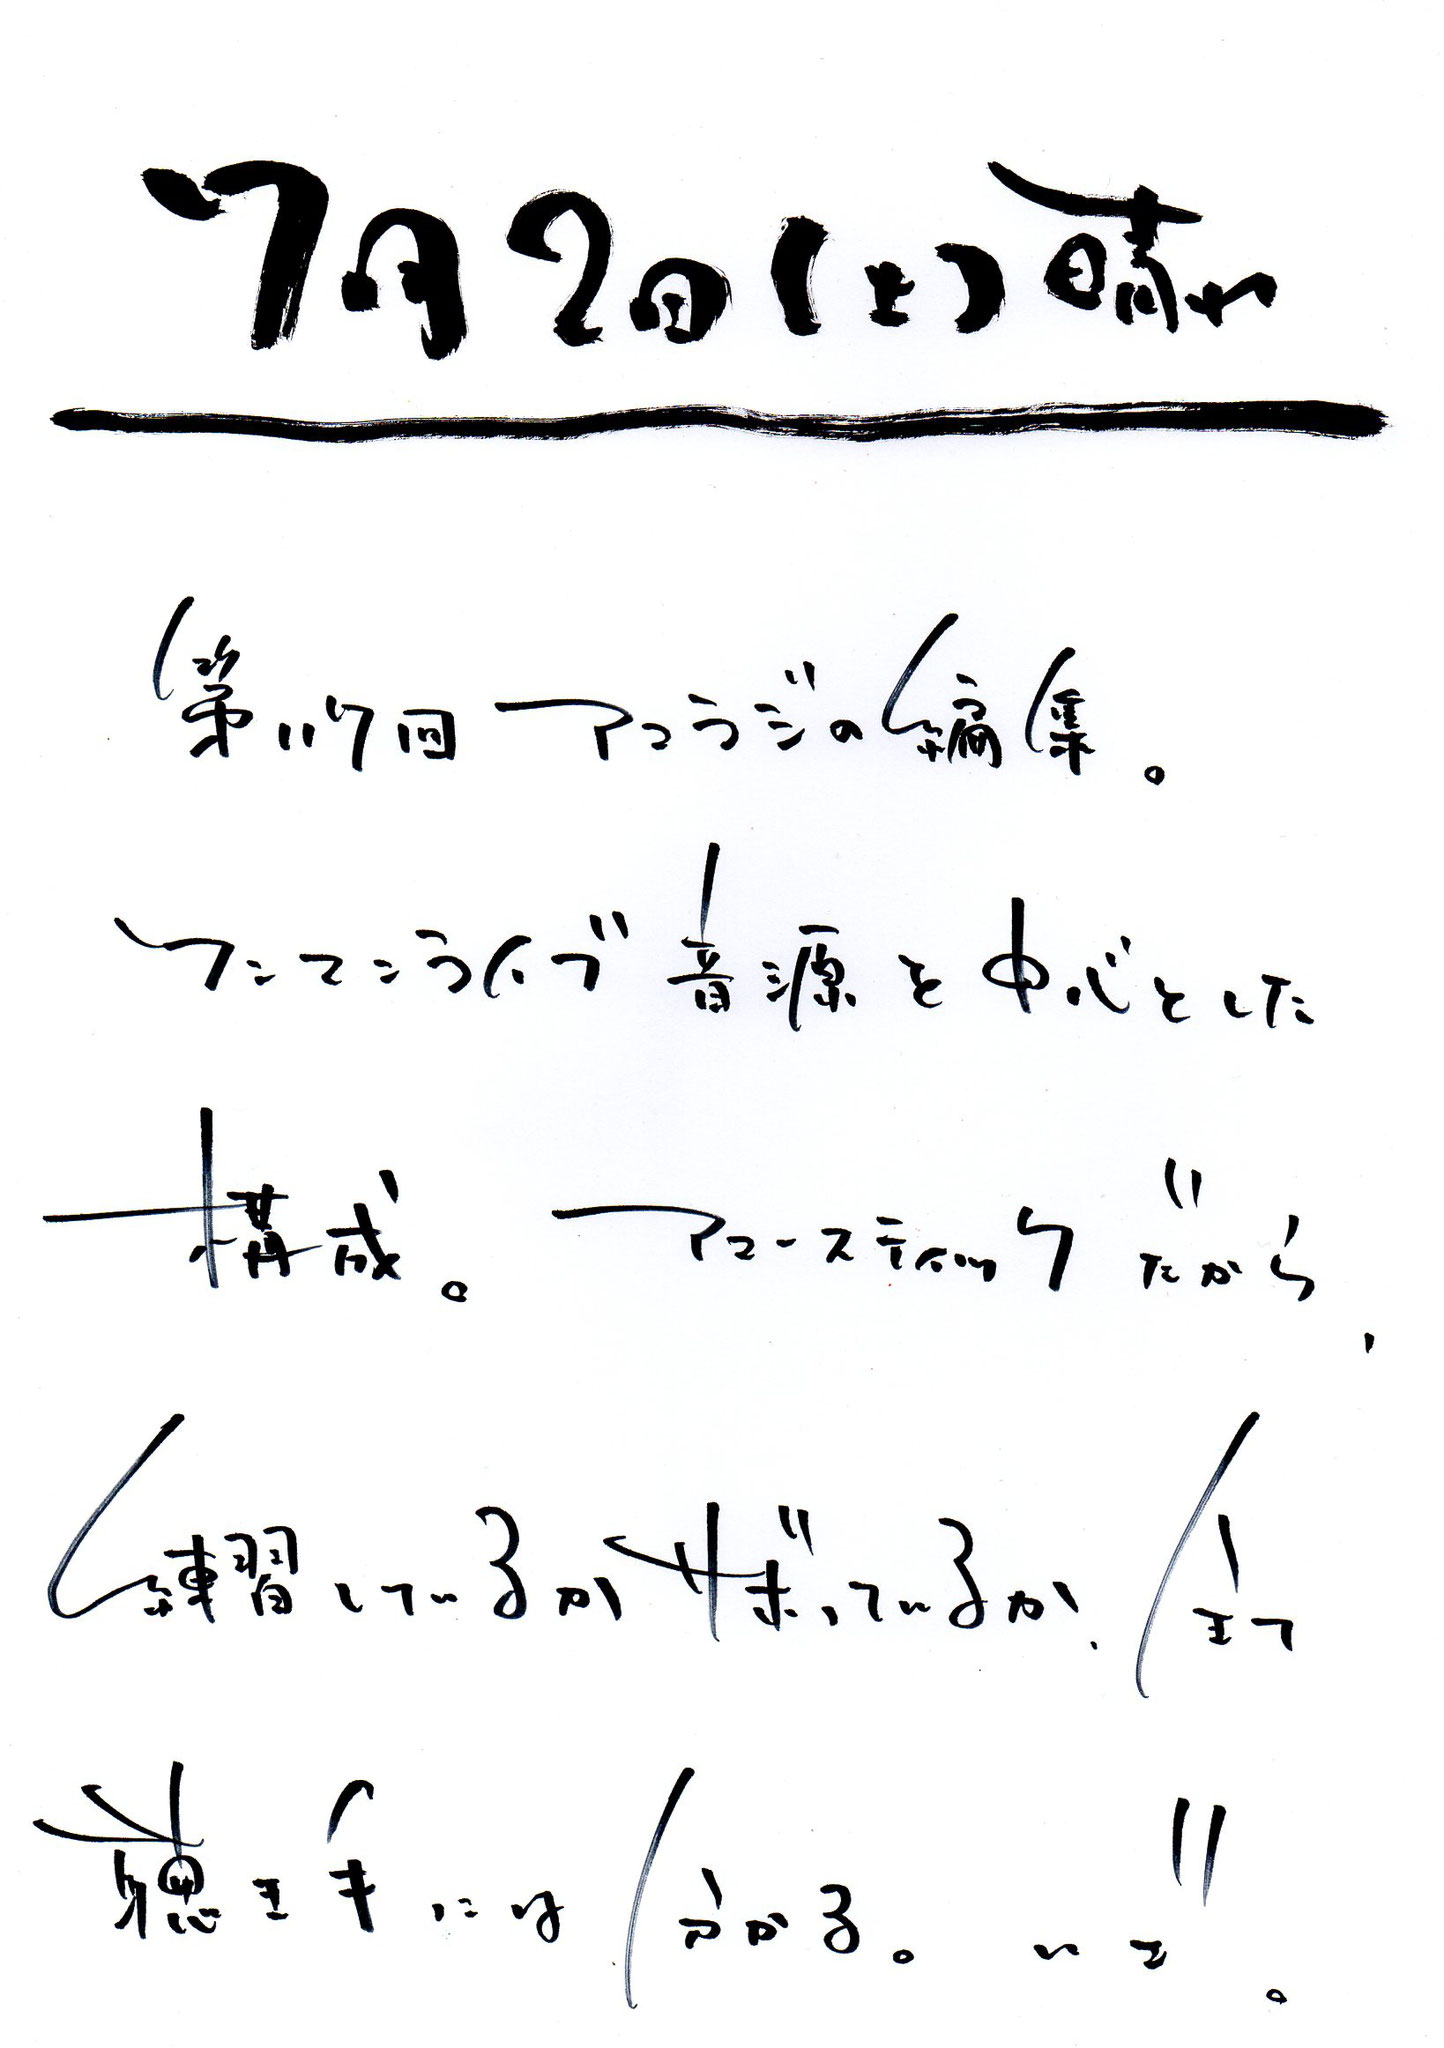 7月2日(土)晴れ
第117回 アコラジの編集。
ワンマンライブ音源を中心とした
構成。 アコースティックだから、
練習しているかサボっているか、全て
聴き手には分かる。